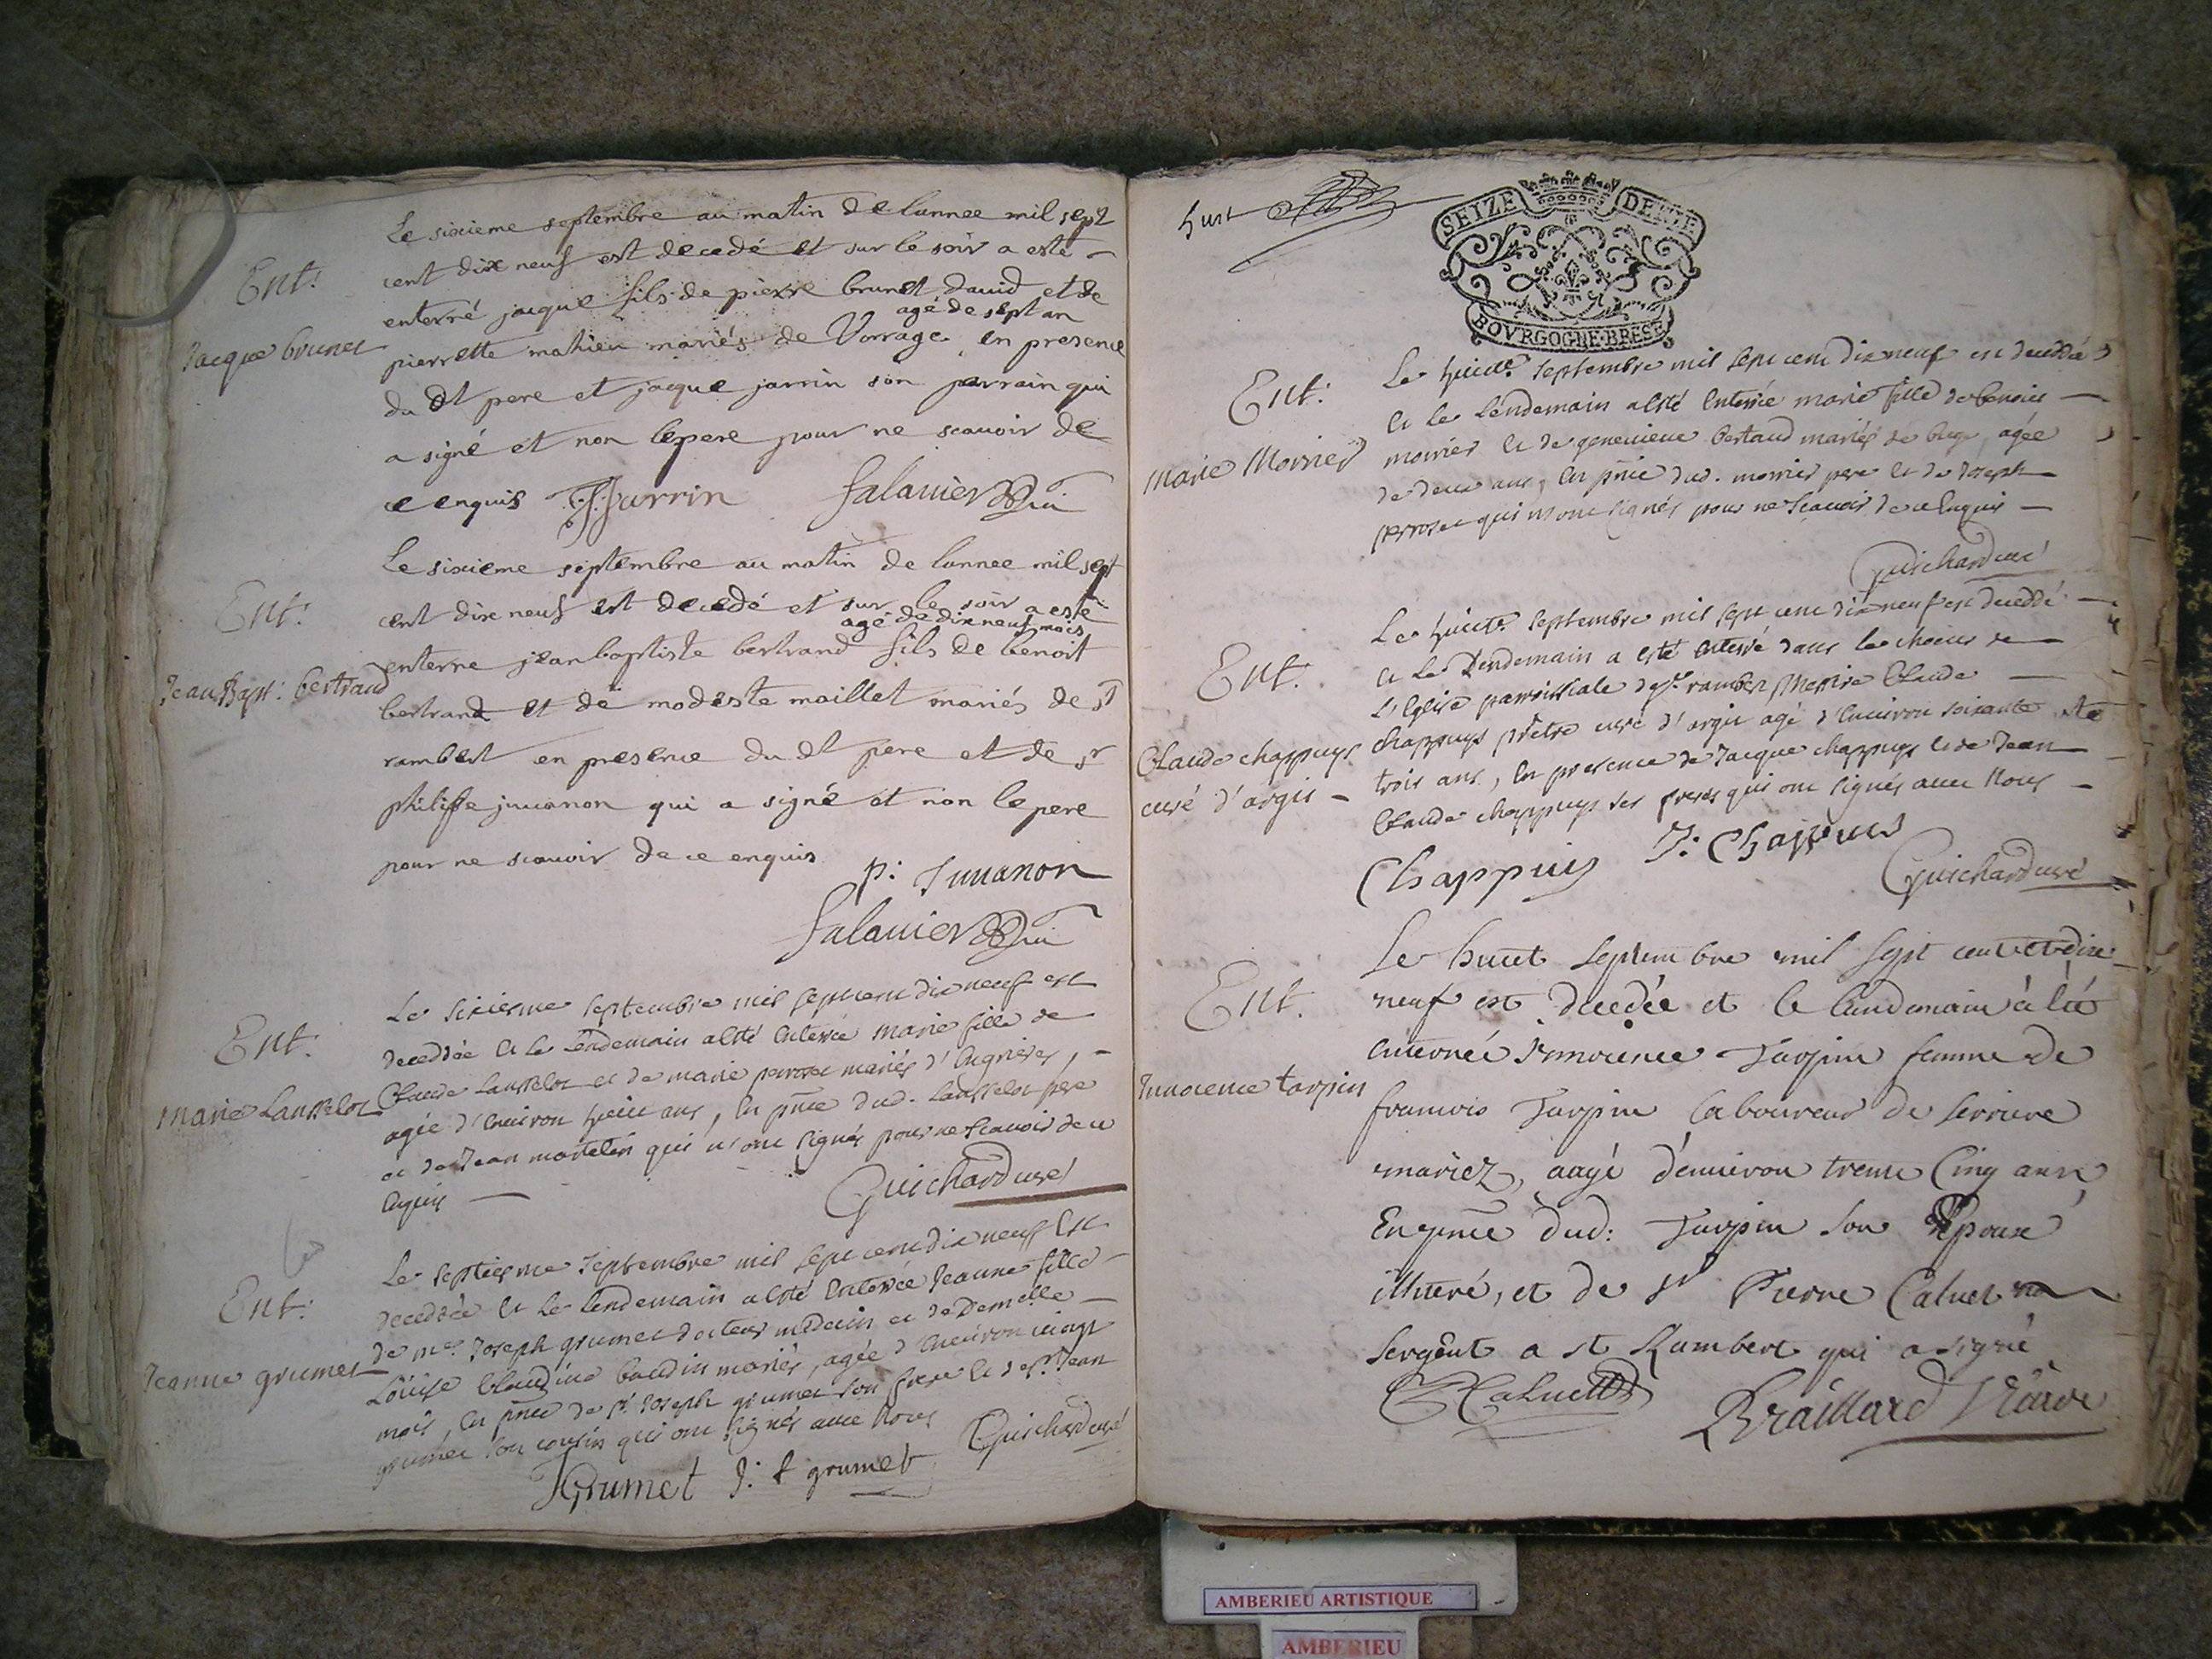 Le sixieme septembre au matin de lannee mil sept
Ent:
cent dixe neuf est decedé et sur le soir a esté
enterré jaque fils de pierre brunet david et de
agé de sept an
Jacque brunet
pierrette mahieu mariés de Vorrage en presence
du dt pere et jaque jarrin son parrain qui
a signé et non lepere pour ne scauoir de
ce enquis J: Jarrin falauier
Le sixieme septembre au matin de lannee mil sept
Ent:
cent dixe neuf est decedé et sur le soir a esté
agé de dixneuf mois
Jean Bapt: bertrand
enterré jeanbaptiste bertrand fils de benoit
bertrand et de modeste maillet mariés de st
rambert en presence du dt pere et de sr
philippe juuanon qui a signé et non le pere
pour ne scauoir de ce enquis
p: Juuanon
falauier
Ent:
Le sixiesme septembre mil sept cent dix neuf est
decedée et le Lendemain a esté Enterrée Marie fille de
Marie Lansselot
Claude Lansselot et de marie perroset mariés d'Engrieres,
agée d'Enuiron huict ans, En pnce dud. Lansselot pere
et de Jean martelin qui n'ont signés pour ne scauoir de ce
Enquis
Guichard curé
Ent:
Le septiesme septembre mil sept cent dix neuf Est
decedée et le Lendemain a esté Enterrée Jeanne fille
Jeanne grumet
de mre Joseph grumet docteur medecin et de Demelle
Loüise Claudine baudin mariés, agée d'Enuiron vingt
mois, En pnce de sr Joseph grumet son frere et de sr Jean
grumet son cousin qui ont signés auec Nous
JGrumet J: f grumet Guichard curé
SEIZE DENIE
BOVRGOGNE·BRESE
Ent:
Le huicte septembre mil sept cent dix neuf est decedée
et le Lendemain a esté Enterrée marie fille de benoit
Marie Moirier
moirier et de geneuieue bertaud mariés de , agée
de deux ans, En pnce dud. moirier pere et de Joseph
perroset qui n'ont signés pour ne scauoir de ce Enquis
Guichard curé
Ent.
Le huicte septembre mil sept cent dix neuf est decedé
et le Lendemain a esté Enterré dans le choeur de
L'Eglise parroissiale de st rambert Messire Claude
Claude chappuys
curé d'argis
chappuys prêtre curé d'argis agé d'Enuiron soixante et
trois ans, En presence de Jacque chappuys et de Jean
Claude chappuys ses freres qui ont signés auec Nous
Chappuis J: Chappuis Guichard curé
Ent.
Le huict septembre mil sept cent et dixe
neuf est decedée et le lendemain à été
Innocence tarpin
enterrée Innocence Tarpin femme de
francois Tarpin laboureur de serriere
mariez, aagé d'enuiron trente Cinq ans
En pnce dud: Tarpin son Epoux
illiteré, et de sr Pierre Caluet
sergent a st Rambert qui a signé
Caluet Braillard Vicaire
AMBERIEU ARTISTIQUE
AMBERIEU